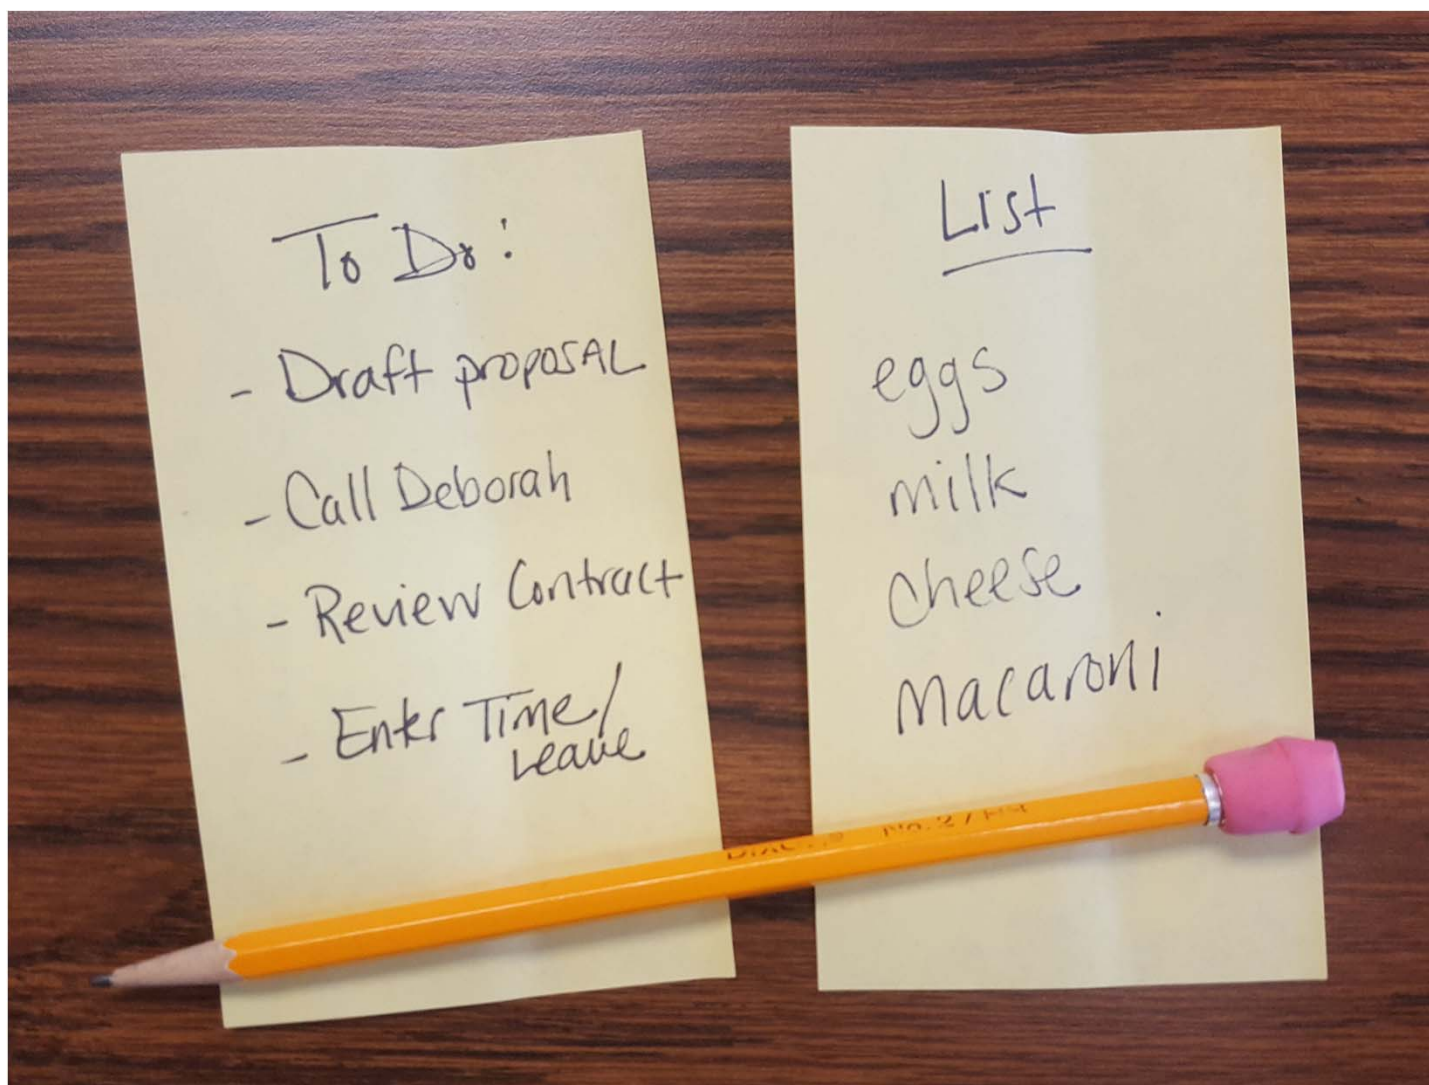 To Do:
- Draft proposAL
- Call Deborah
- Review Contract
- Enter Time/
Leave
List
eggs
milk
cheese
Macaroni
No. 2/HB